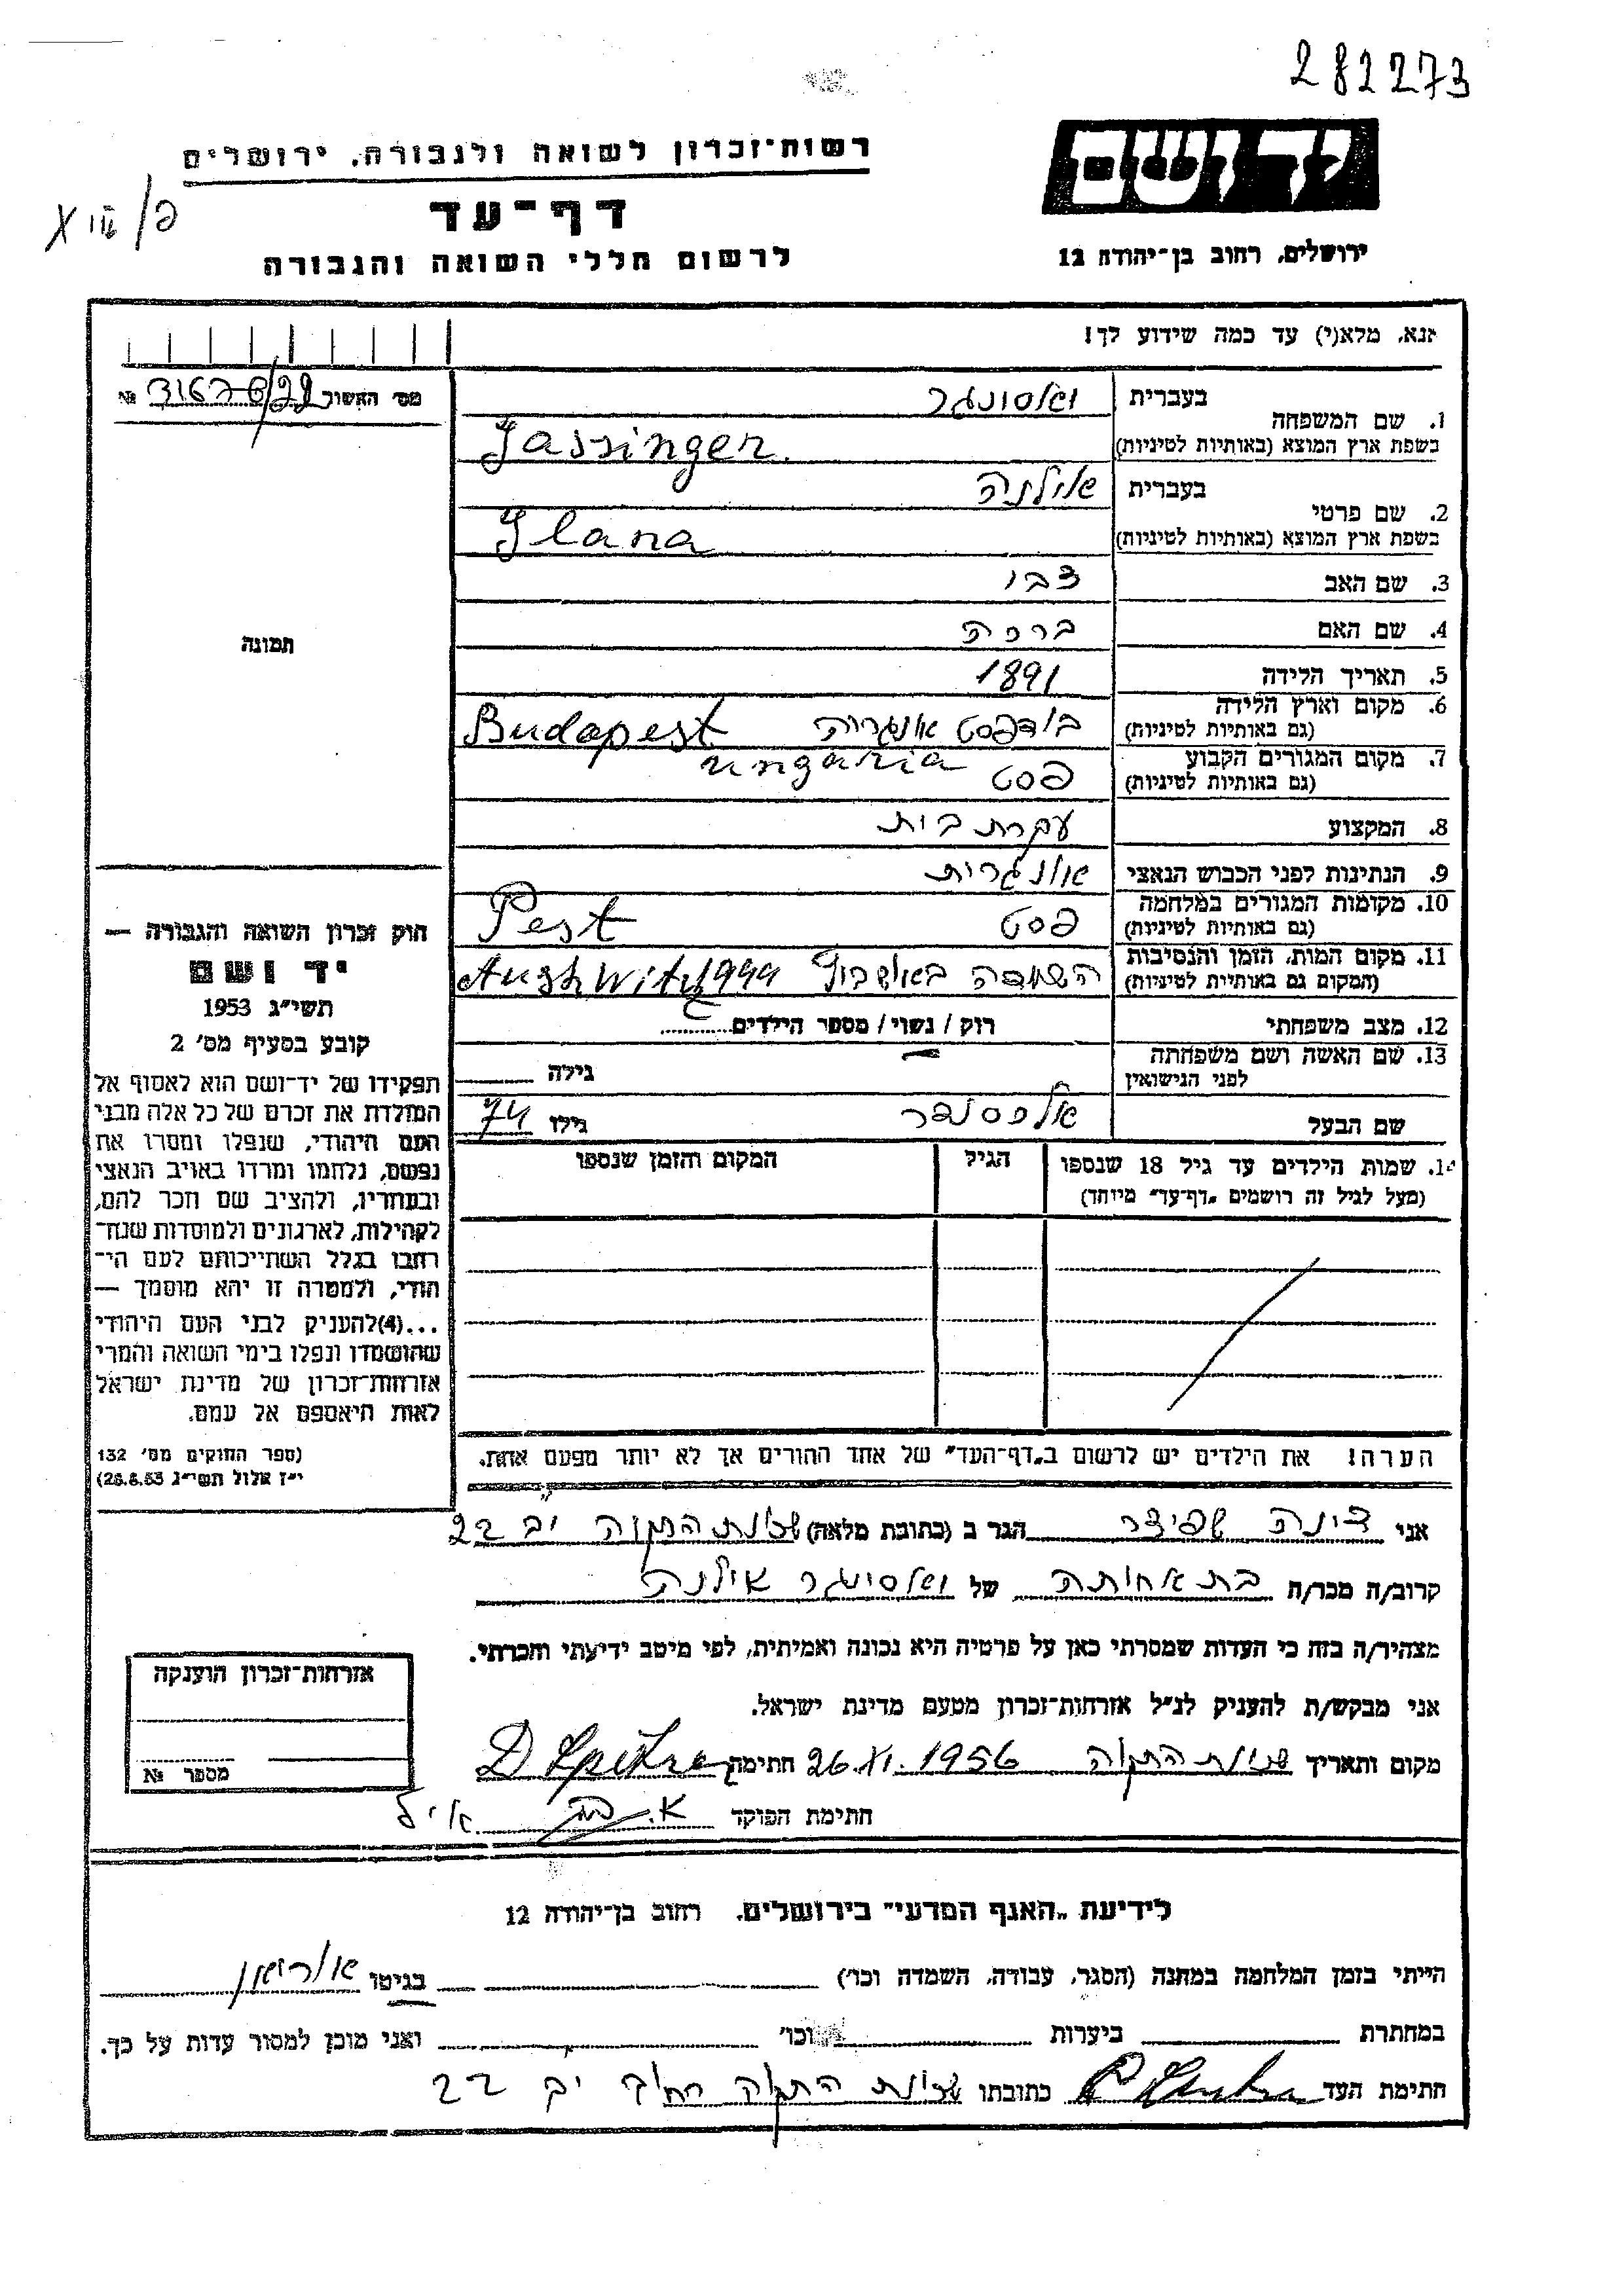 282273
יד ושם
רשות־זכרון לשואה ולגבורה, ירושלים
דף־עד
לרשום חללי השואה והגבורה
ירושלים, רחוב בן־יהודה 12
אנא, מלא(י) עד כמה שידוע לך!
מס׳ האשור №
1. שם המשפחה בעברית
בשפת ארץ המוצא (באותיות לטיניות) Jassinger
2. שם פרטי בעברית אילנה
בשפת ארץ המוצא (באותיות לטיניות) Ilana
3. שם האב צבי
4. שם האם ברכה
5. תאריך הלידה 1891
6. מקום וארץ הלידה (גם באותיות לטיניות) בודפסט אונגריה Budapest
ungaria
7. מקום המגורים הקבוע (גם באותיות לטיניות) פסט
8. המקצוע עקרת בית
9. הנתינות לפני הכבוש הנאצי אונגרית
10. מקומות המגורים במלחמה (גם באותיות לטיניות) פסט Pest
11. מקום המות, הזמן והנסיבות (המקום גם באותיות לטיניות) השמדה באושביץ 1944 AushWitz
12. מצב משפחתי רוק / נשוי / מספר הילדים
13. שם האשה ושם משפחתה לפני הנישואין גילה
שם הבעל אלכסנדר גילו 74
14. שמות הילדים עד גיל 18 שנספו (מעל לגיל זה רושמים „דף־עד" מיוחד) הגיל המקום והזמן שנספו
הערה! את הילדים יש לרשום ב„דף־העד" של אחד ההורים אך לא יותר מפעם אחת.
תמונה
חוק זכרון השואה והגבורה —
יד ושם
תשי״ג 1953
קובע בסעיף מס׳ 2
תפקידו של יד־ושם הוא לאסוף אל
המולדת את זכרם של כל אלה מבני
העם היהודי, שנפלו ומסרו את
נפשם, נלחמו ומרדו באויב הנאצי
ובעוזריו, ולהציב שם וזכר להם,
לקהילות, לארגונים ולמוסדות שנח־
רבו בגלל השתייכותם לעם הי־
הודי, ולמטרה זו יהא מוסמך —
...(4)להעניק לבני העם היהודי
שהושמדו ונפלו בימי השואה והמרי
אזרחות־זכרון של מדינת ישראל
לאות היאספם אל עמם.
(ספר החוקים מס׳ 132
י״ז אלול תשי״ג 28.8.53)
אני דינה שפיצר הגר ב (כתובת מלאה) שכונת התקוה יב 22
קרוב/ה מכר/ה בת אחותה של אילנה
מצהיר/ה בזה כי העדות שמסרתי כאן על פרטיה היא נכונה ואמיתית, לפי מיטב ידיעתי והכרתי.
אני מבקש/ת להעניק לנ״ל אזרחות־זכרון מטעם מדינת ישראל.
מקום ותאריך שכונת התקוה 26.XI.1956 חתימה
חתימת הפוקד
אזרחות־זכרון הוענקה
מספר №
לידיעת „האגף המדעי" בירושלים, רחוב בן־יהודה 12
הייתי בזמן המלחמה במחנה (הסגר, עבודה, השמדה וכו׳) בגיטו
במחתרת ביערות וכו׳ ואני מוכן למסור עדות על כך.
חתימת העד כתובתו שכונת התקוה רחוב יב 22